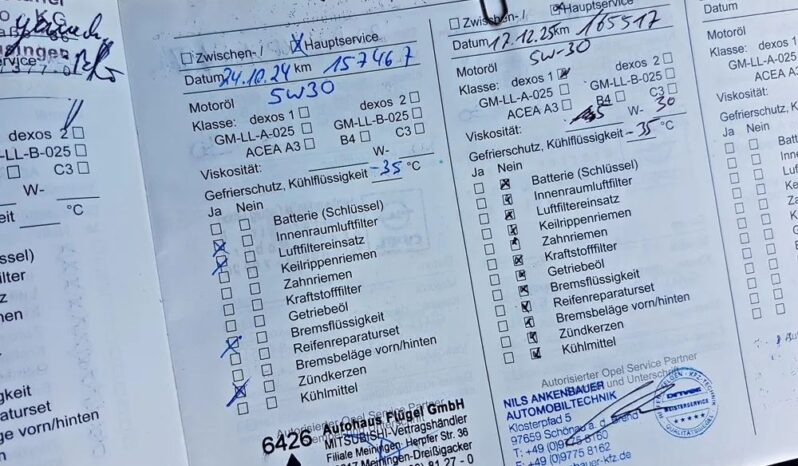 Zwischen- / Hauptservice
Datum 24.10.24 km 157467
Motoröl 5W30
Klasse: dexos 1 dexos 2
GM-LL-A-025 GM-LL-B-025
ACEA A3 B4 C3
Viskosität: W-
Gefrierschutz, Kühlflüssigkeit -35 °C
Ja Nein
Batterie (Schlüssel)
Innenraumluftfilter
Luftfiltereinsatz
Keilrippenriemen
Zahnriemen
Kraftstofffilter
Getriebeöl
Bremsflüssigkeit
Reifenreparaturset
Bremsbeläge vorn/hinten
Zündkerzen
Kühlmittel
6426 Autohaus Flügel GmbH
MITSUBISHI-Vertragshändler
Filiale Meiningen- Herpfer Str. 36
Meiningen-Dreißigacker
81 27 - 0
Zwischen- / Hauptservice
Datum 17.12.25 km 165517
Motoröl 5W-30
Klasse: dexos 1 dexos 2
GM-LL-A-025 GM-LL-B-025
ACEA A3 B4 C3
Viskosität: W- 30
Gefrierschutz, Kühlflüssigkeit -35 °C
Ja Nein
Batterie (Schlüssel)
Innenraumluftfilter
Luftfiltereinsatz
Keilrippenriemen
Zahnriemen
Kraftstofffilter
Getriebeöl
Bremsflüssigkeit
Reifenreparaturset
Bremsbeläge vorn/hinten
Zündkerzen
Kühlmittel
Autorisierter Opel Service Partner
und Unterschrift
NILS ANKENBAUER
AUTOMOBILTECHNIK
Klosterpfad 5
97659 Schönau a. d. Brend
T: +49 (0)9775 8160
F: +49 (0)9775 8162
bauer-kfz.de
MEISTERSERVICE
dexos 2
-LL-B-025
C3
W-
keit °C
üssel)
tfilter
z
en
gkeit
aturset
ge vorn/hinten
Zwischen-
Datum
Motoröl
Klasse:
Viskosität:
Gefrierschutz
Ja Nein